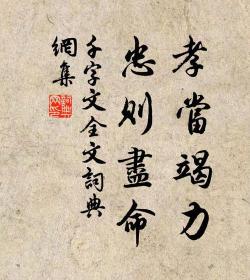 孝當竭力
忠則盡命
千字文全文詞典
網集